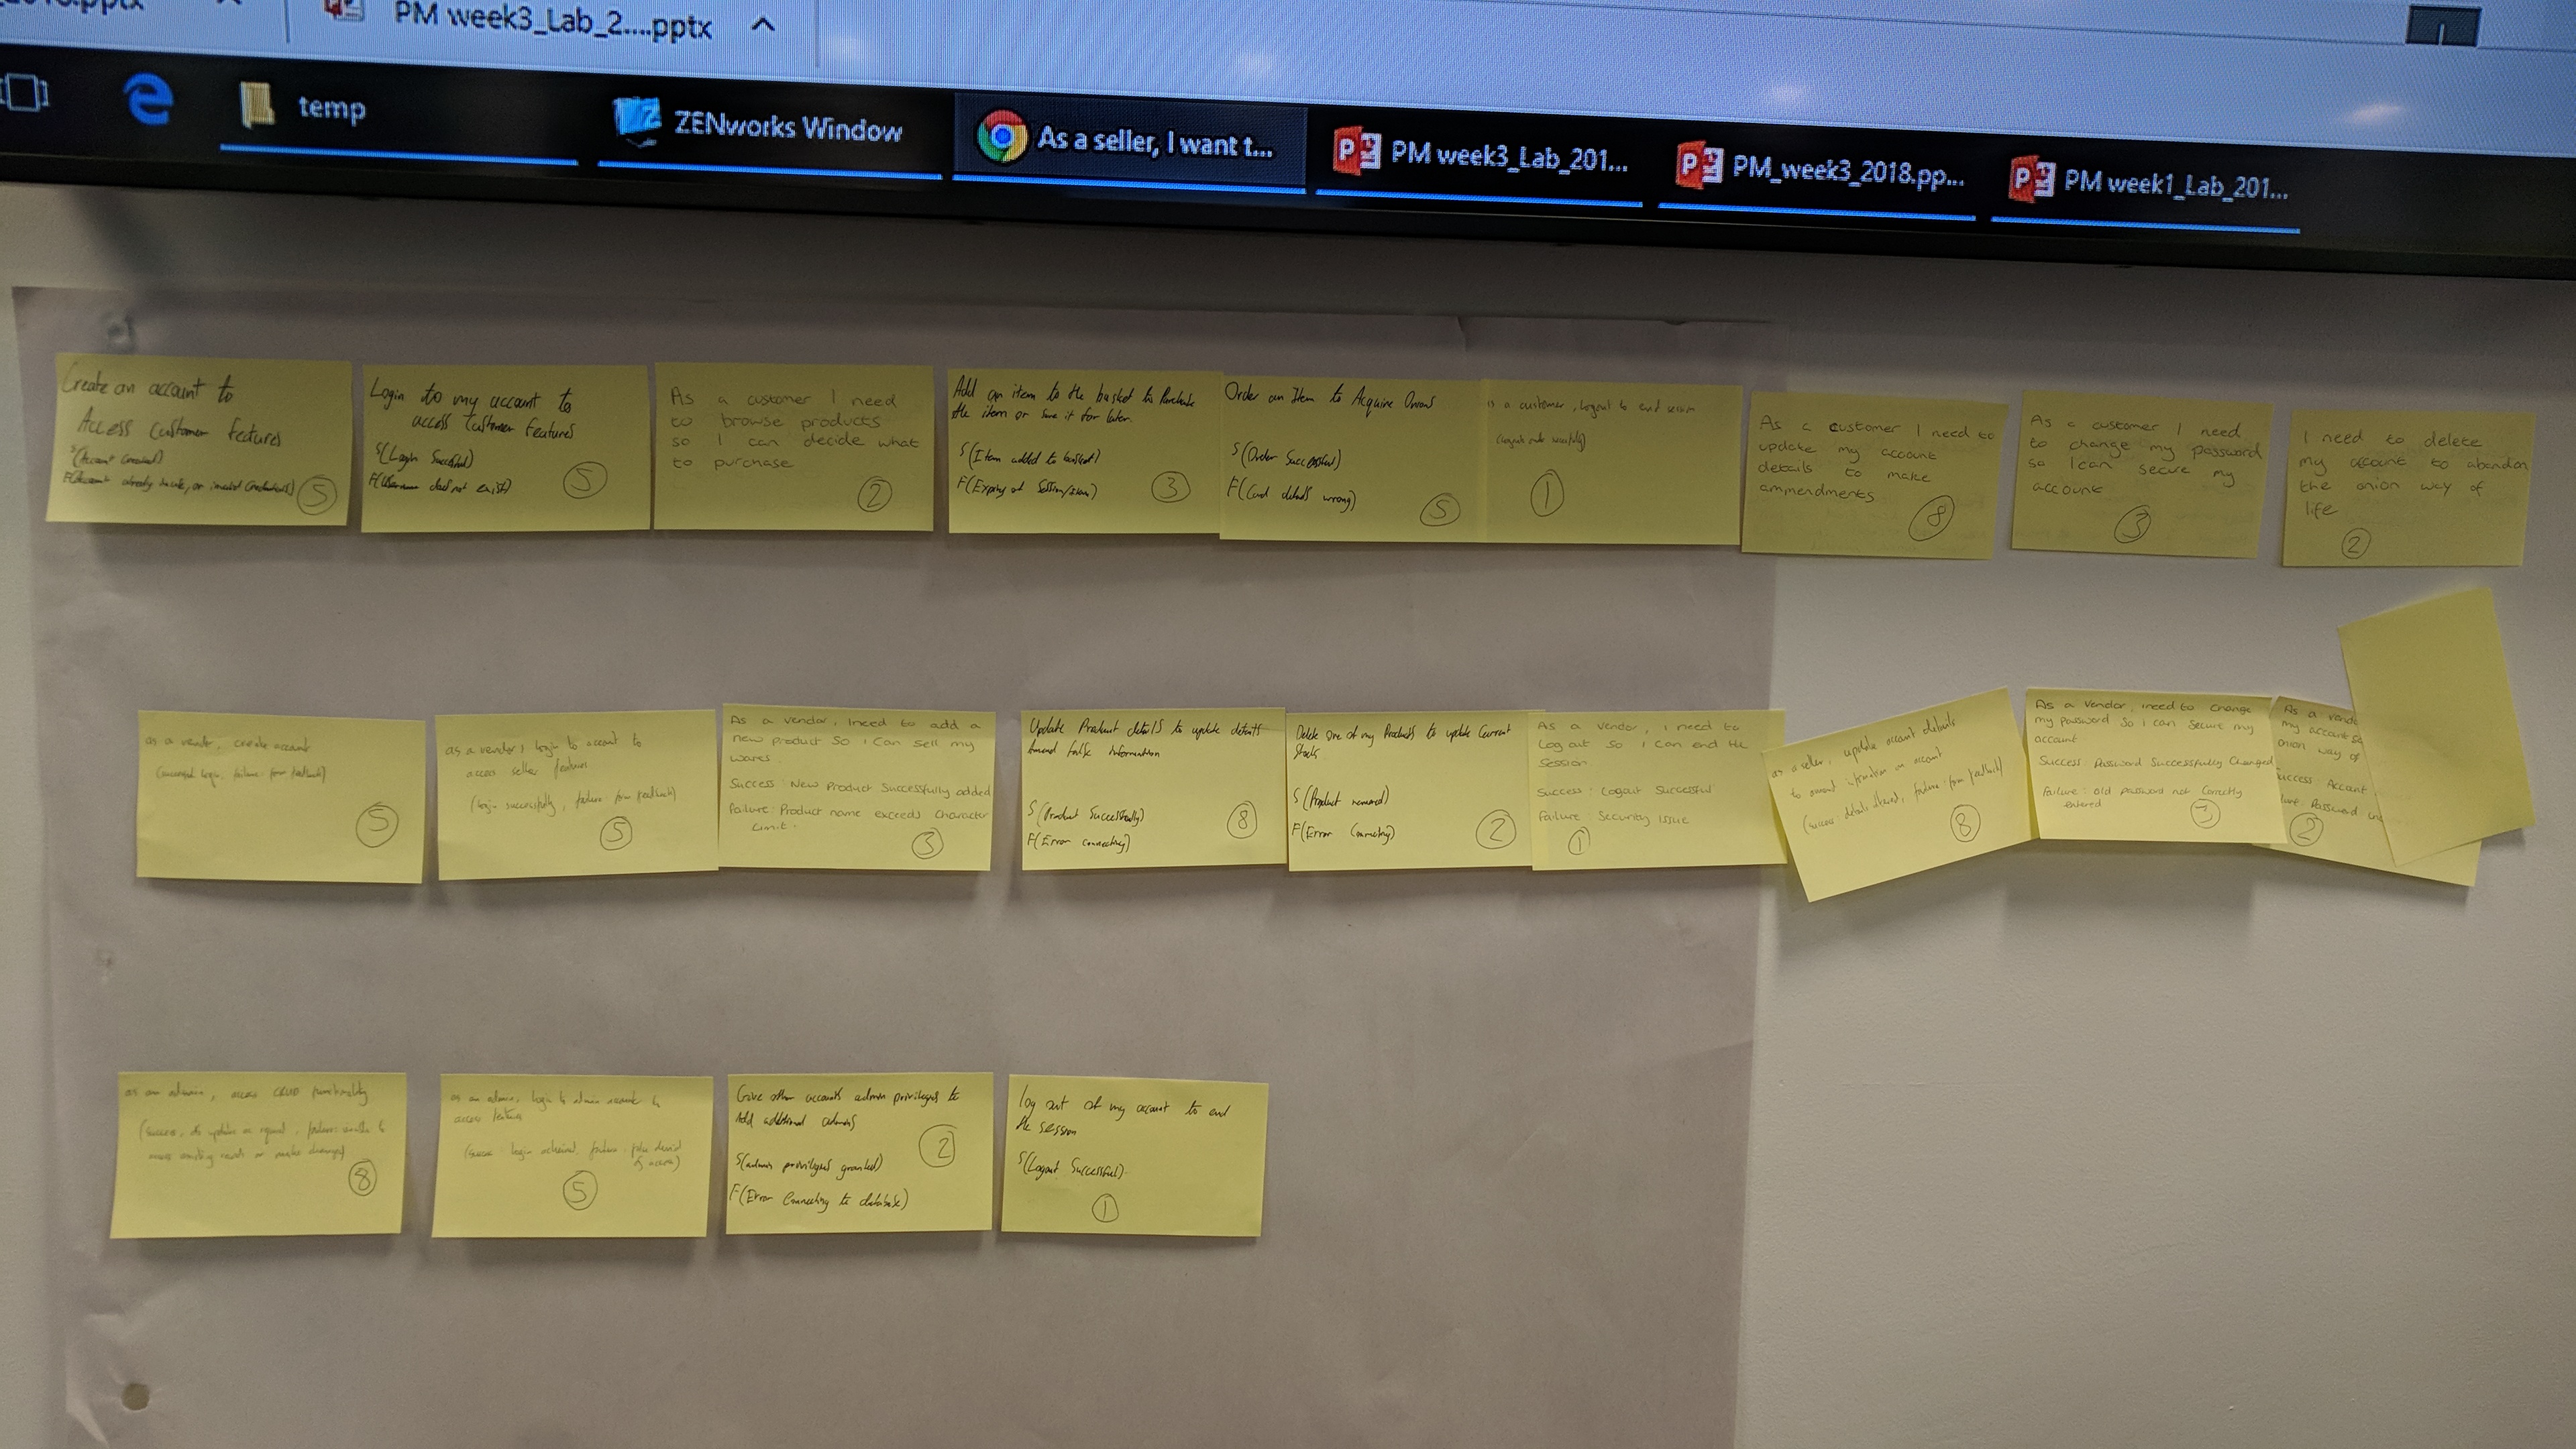 PM week3_Lab_2....pptx
temp
ZENworks Window
As a seller, I want t...
PM week3_Lab_201...
PM_week3_2018.pp...
PM week1_Lab_201...
Create an account to
Access Customer features
S(Account Created)
already in use, or invalid Credentials)
5
Login to my account to
access Customer Features
S(Login Successful)
F(Username does not exist)
5
As a customer I need
to browse products
so I can decide what
to purchase
2
Add an item to the basket to Purchase
the item or save it for later.
S(Item added to basket)
F(Expiry of Session/item)
3
Order an Item to Acquire Onions
S(Order Successful)
F(Card details wrong)
5
as a customer, logout to end session
1
As a customer I need to
update my account
details to make
ammendments
8
As a customer I need
to change my password
so I can secure my
account
3
I need to delete
my account to abandon
the onion way of
life
2
as a vendor, create account
(successful login, failure: form feedback)
5
as a vendor, login to account to
access seller features
(login successfully, failure: form feedback)
5
As a vendor, I need to add a
new product so i can sell my
wares.
Success: New Product Successfully added
Failure: Product name exceeds character
Limit.
3
Update Product details to update details
amend false information
S(Product Successfully)
F(Error connecting)
8
Delete one of my Products to update Current
Stock.
S(Product removed)
F(Error Connecting)
2
As a vendor, i need to
Log out so i can end the
Session
Success: Logout Successful
Failure: Security Issue
1
as a seller, update account details
to amend information on account
(success: details altered, failure: form feedback)
8
As a Vendor, i need to change
my password so i can secure my
account
Success: Password Successfully Changed
Failure: old password not correctly
entered
3
As a vendo
my account so
onion way of
uccess: Account
lure: Password inc
2
as an admin, access CRUD functionality
(success, db updates as required, failure: unable to
access existing records or make changes)
8
as an admin, login to admin account to
access features
(success: login achieved, failure:
5
Give other accounts admin privileges to
Add additional admins
S(admin privileges granted)
F(Error Connecting to database)
2
log out of my account to end
the session
S(Logout Successful)
1